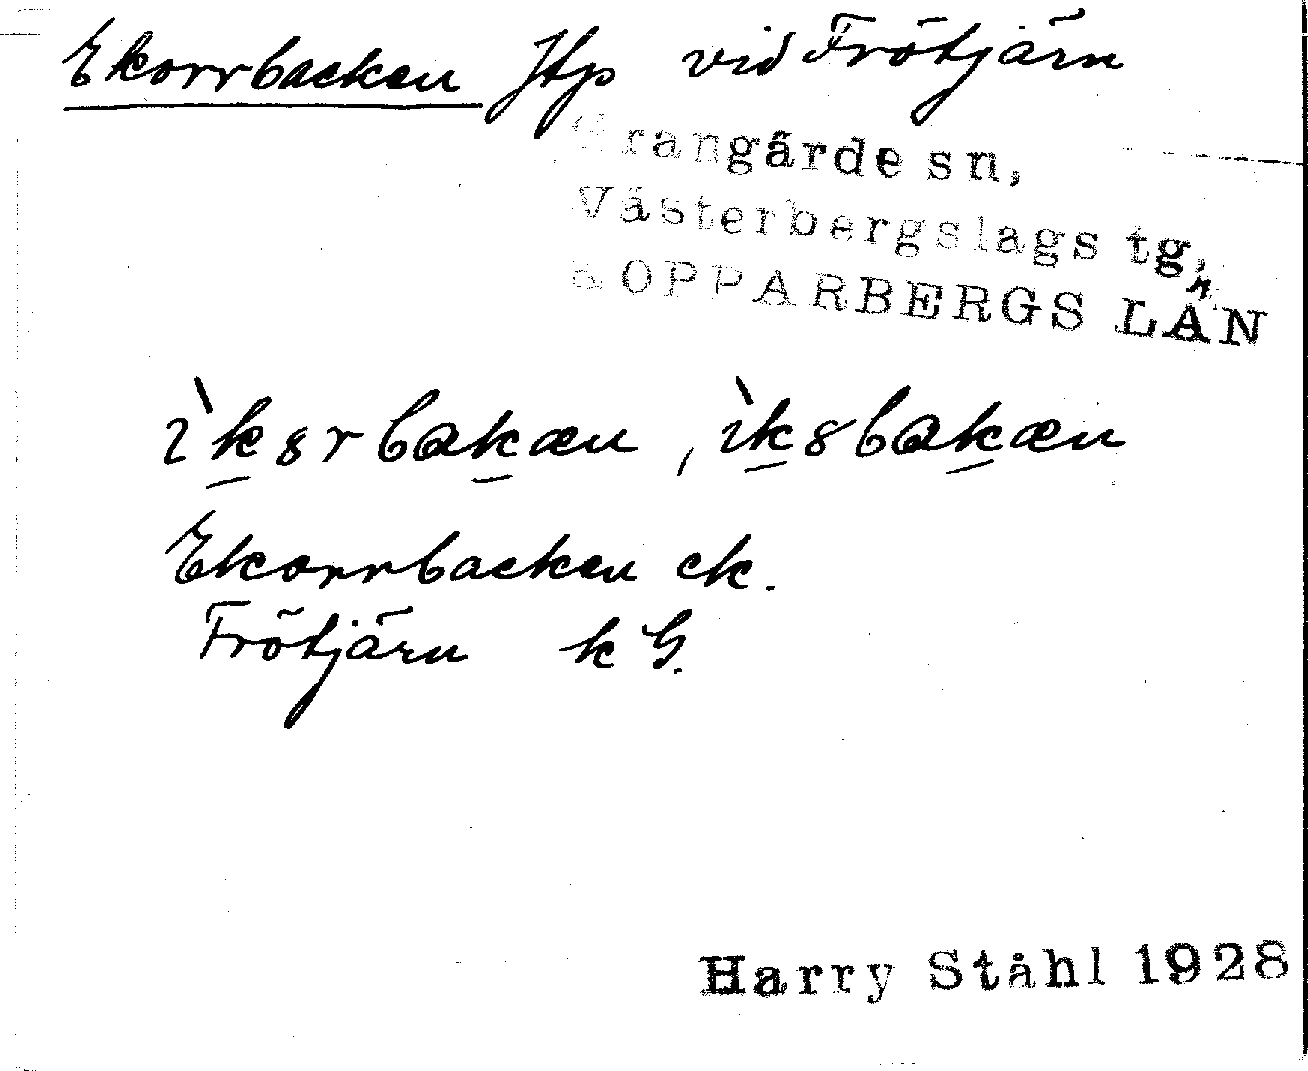 Ekorrbacken Htp vid Frötjärn
Grangärde sn,
Västerbergslags tg,
KOPPARBERGS LÄN
ìk8rbakæn, ìk8bakæn
Ekorrbacken ek.
Frötjärn k G.
Harry Ståhl 1928